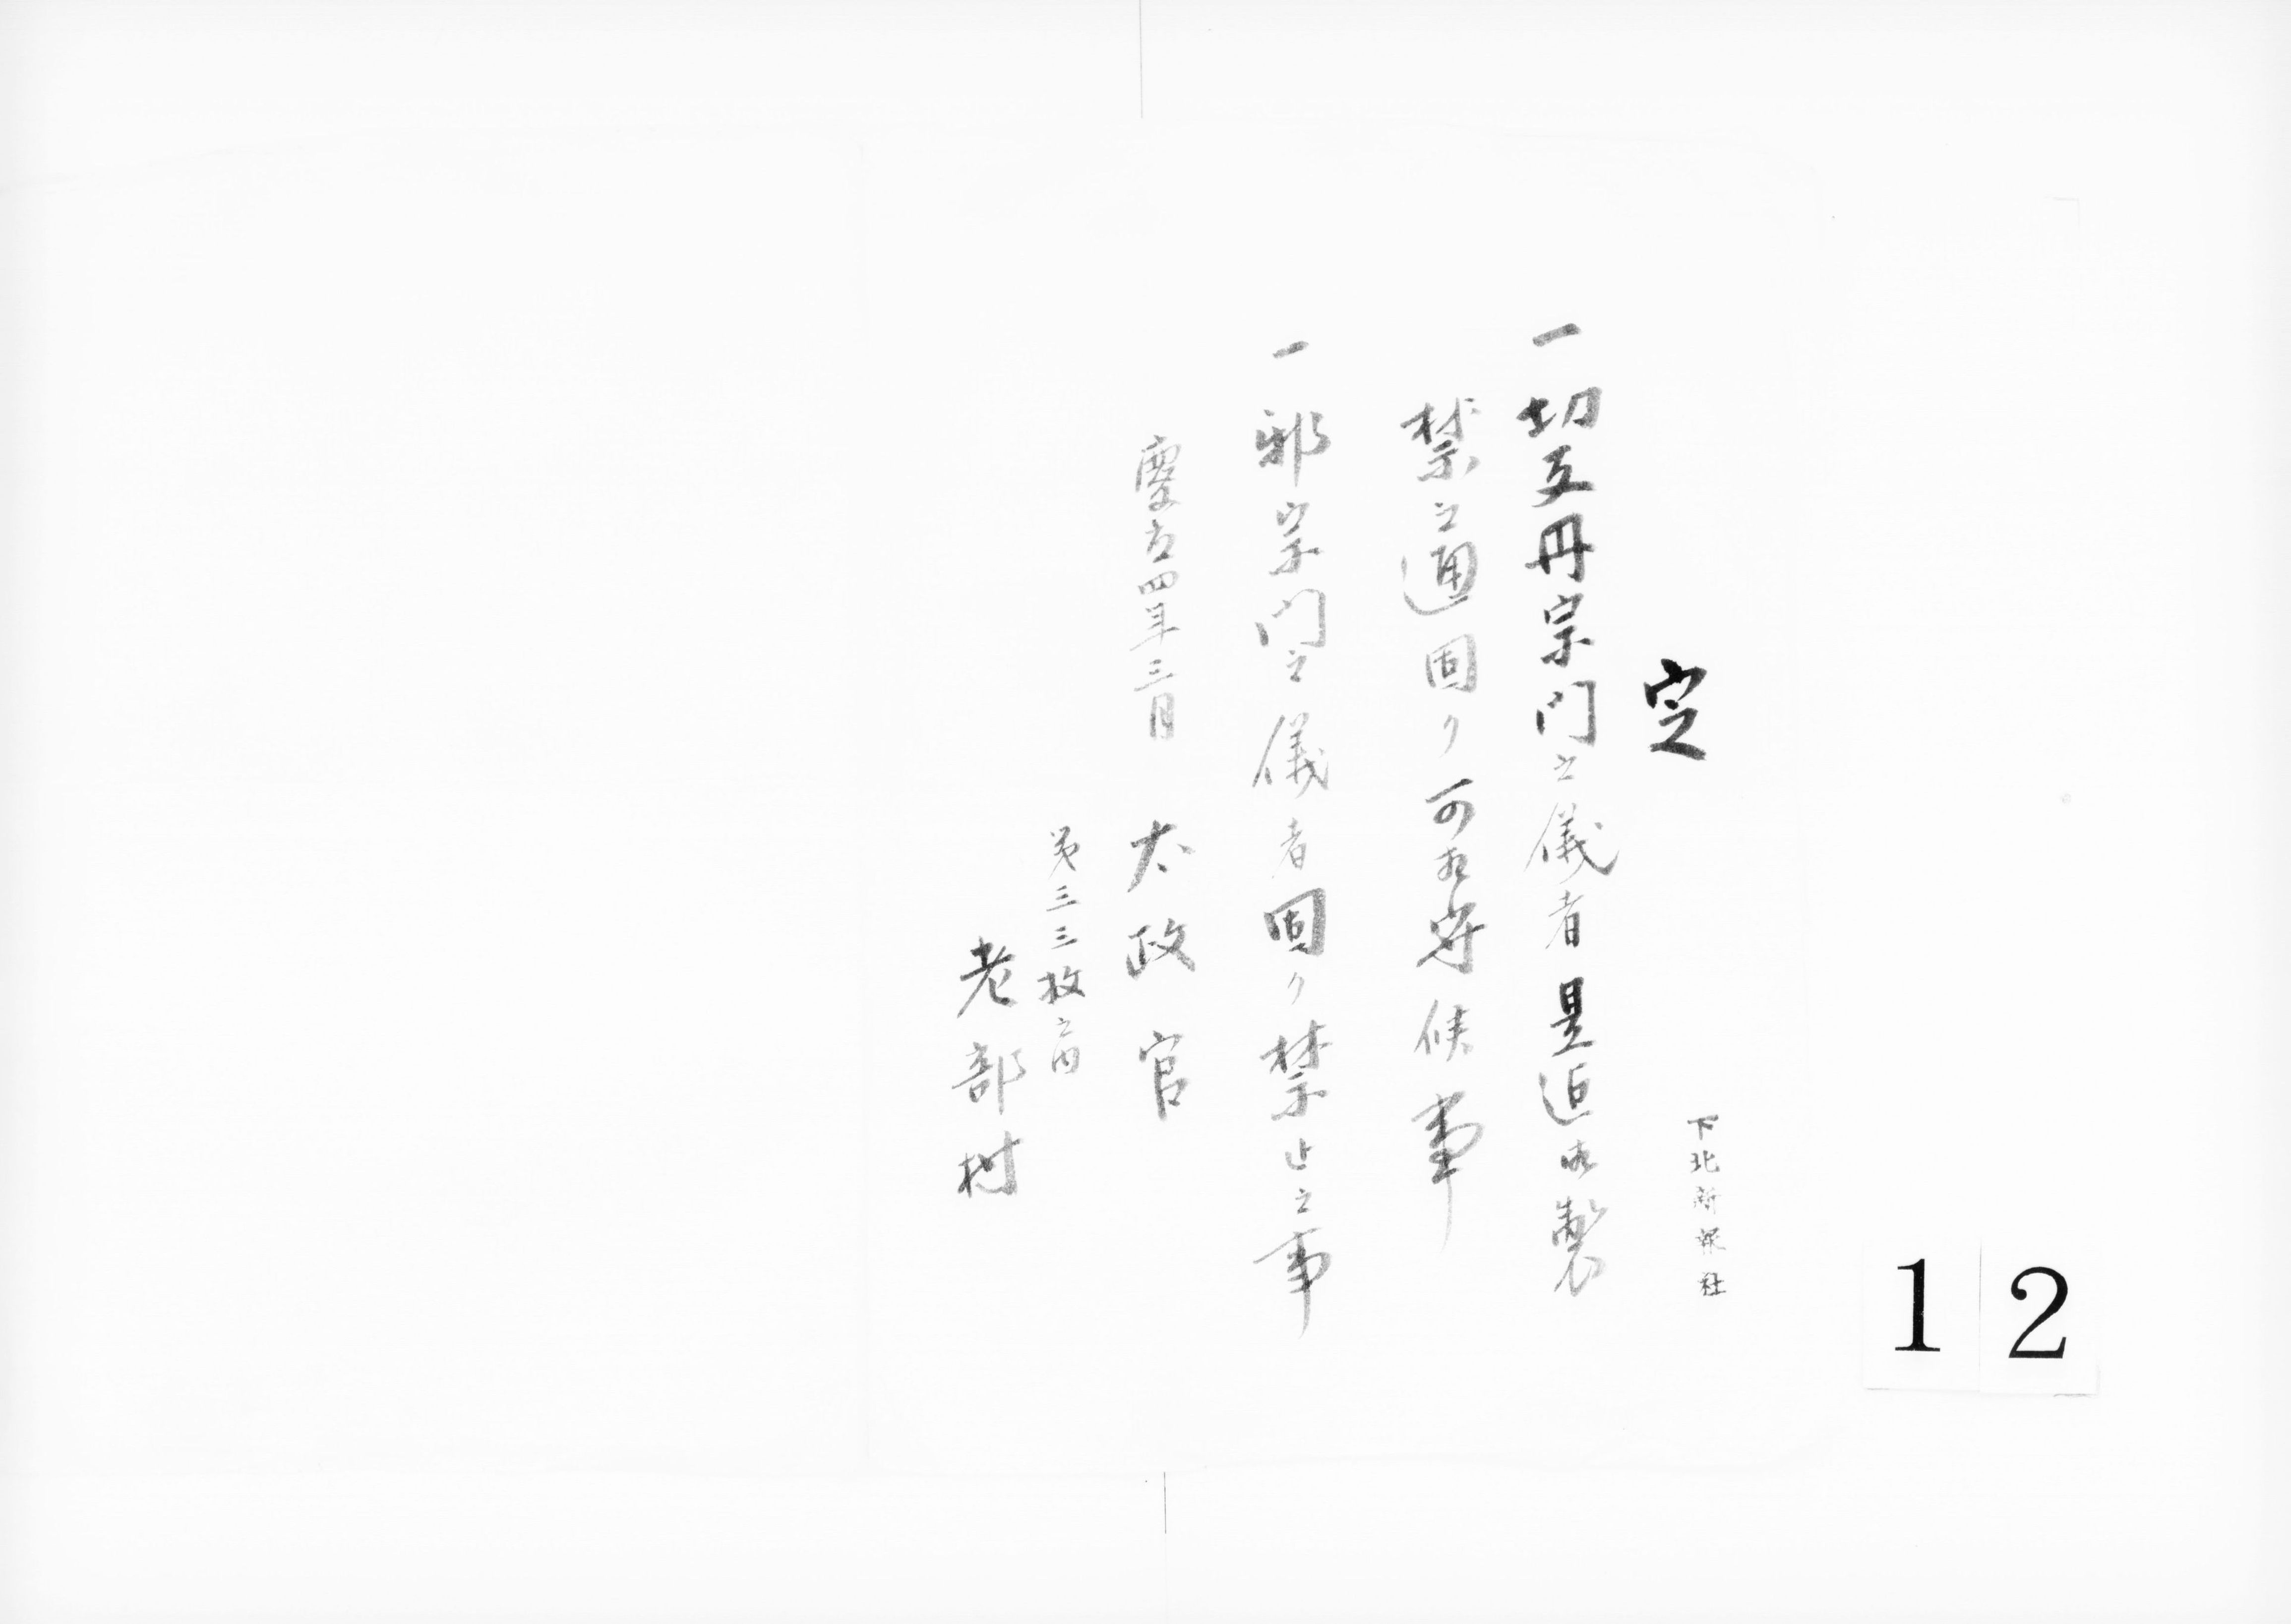 定
下北新報社
一切支丹宗門之儀者是迄御製
禁之通固ク可相守候事
一邪宗門之儀者固ク禁止之事
慶応四年三月 太政官
第三三枚之内
老部村
12